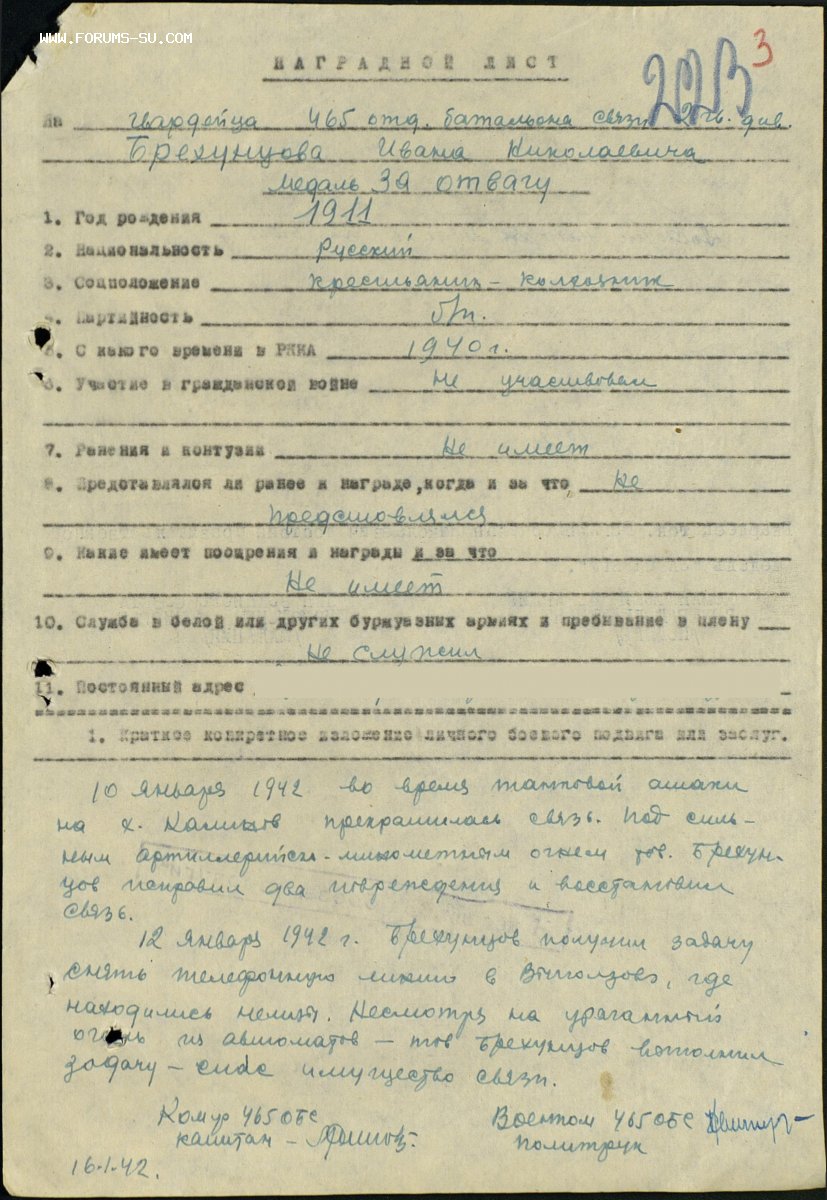 WWW.FORUMS-SU.COM
НАГРАДНОЙ ЛИСТ
223 3
на гвардейца 465 отд. батальона связи 2 гв. див.
Брехунцова Ивана Николаевича
медаль За отвагу
1. Год рождения 1911
2. Национальность Русский
3. Соцположение крестьянин - колхозник
4. Партийность б/п.
5. С какого времени в РККА 1940 г.
6. Участие в гражданской войне Не участвовал
7. Ранения и контузии Не имеет
8. Представлялся ли ранее к награде, когда и за что, Не
Представлялся
9. Какие имеет поощрения и награды и за что
Не имеет
10. Служба в белой или других буржуазных армиях и пребывание в плену
Не служил
11. Постоянный адрес
1. Краткое конкретное изложение личного боевого подвига или заслуг.
10 января 1942 во время танковой атаки
на х. прекратилась связь. Под силь-
ным артиллерийск-минометным огнем тов. Брехун-
цов исправил два повреждения и восстановил
связь.
12 января 1942 г. Брехунцов получил задачу
снять телефонную линию в где
находились немцы. Несмотря на ураганный
огонь из автоматов - тов Брехунцов выполнил
задачу - спас имущество связи.
Комир 465 ОБС Военком 465 ОБС
капитан - политрук
16.1.42.